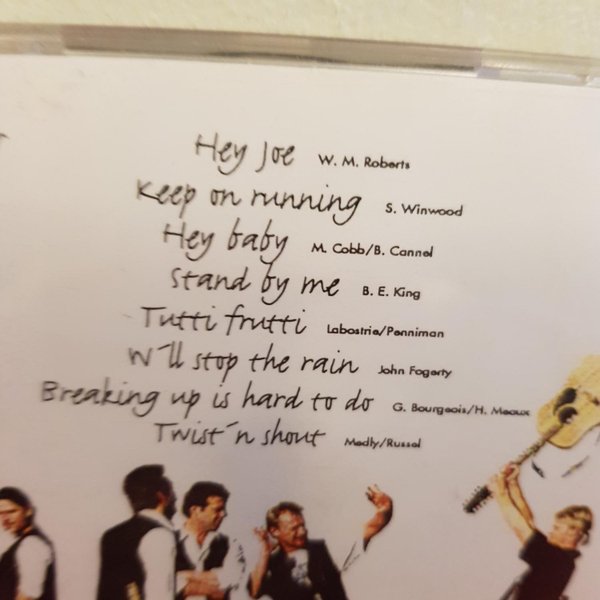 Hey Joe W. M. Roberts
Keep on running S. Winwood
Hey baby M. Cobb/B. Cannel
Stand by me B. E. King
Tutti frutti Labostrie/Penniman
W´ll stop the rain John Fogerty
Breaking up is hard to do G. Bourgeois/H. Meaux
Twist´n shout Medly/Russel